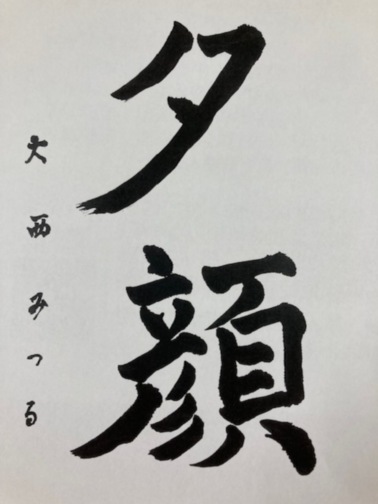 夕顔
大西みつる